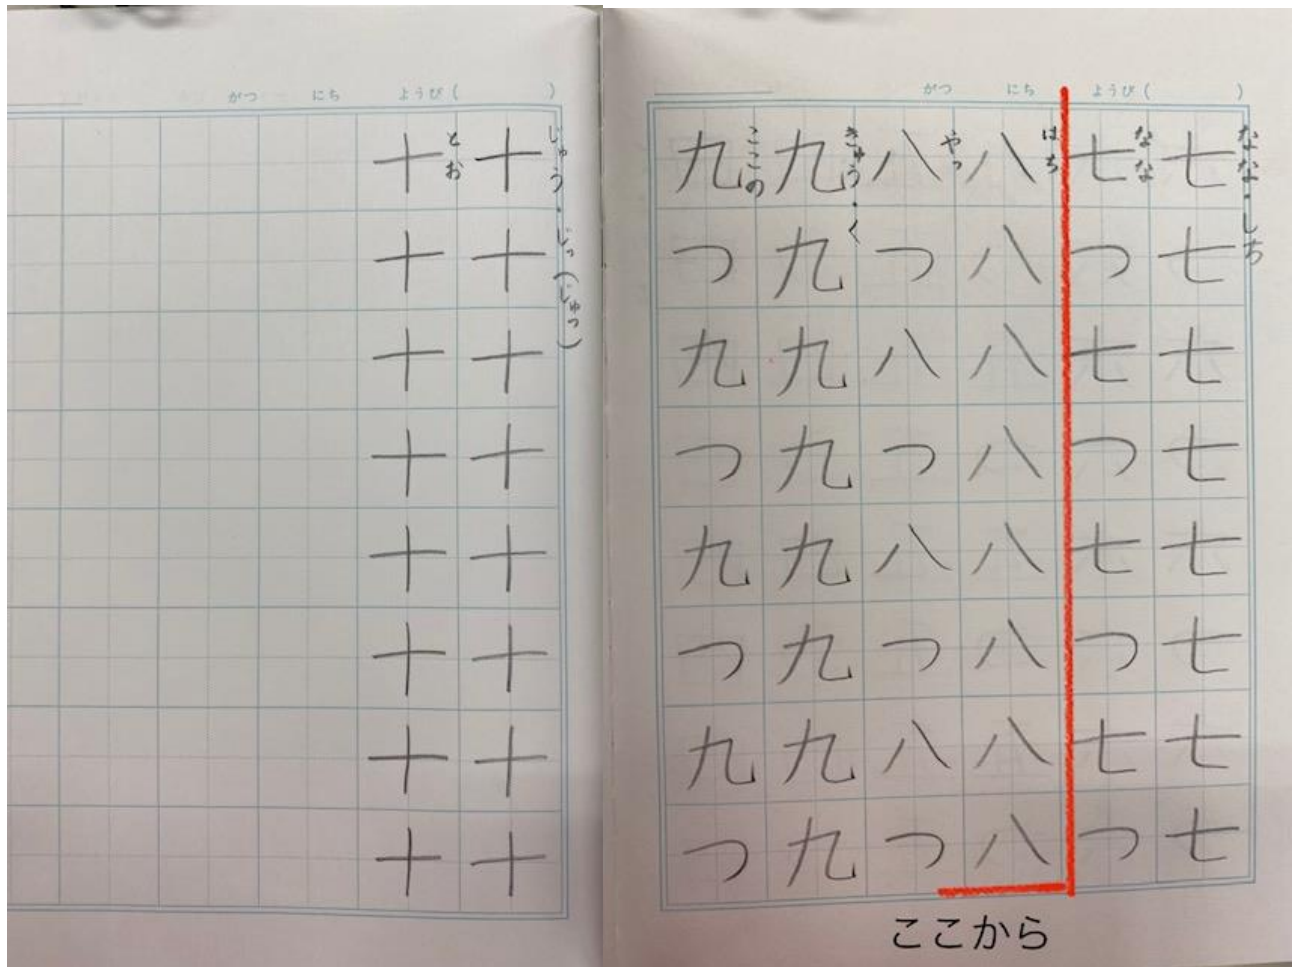 がつ にち ようび( )
なな・しち
七七七七七七七七
なな
七つ七つ七つ七つ
はち
八八八八八八八八
やっ
八つ八つ八つ八つ
きゅう・く
九九九九九九九九
ここの
九つ九つ九つ九つ
ここから
がつ にち ようび( )
じゅう・じっ(じゅっ)
十十十十十十十十
とお
十十十十十十十十